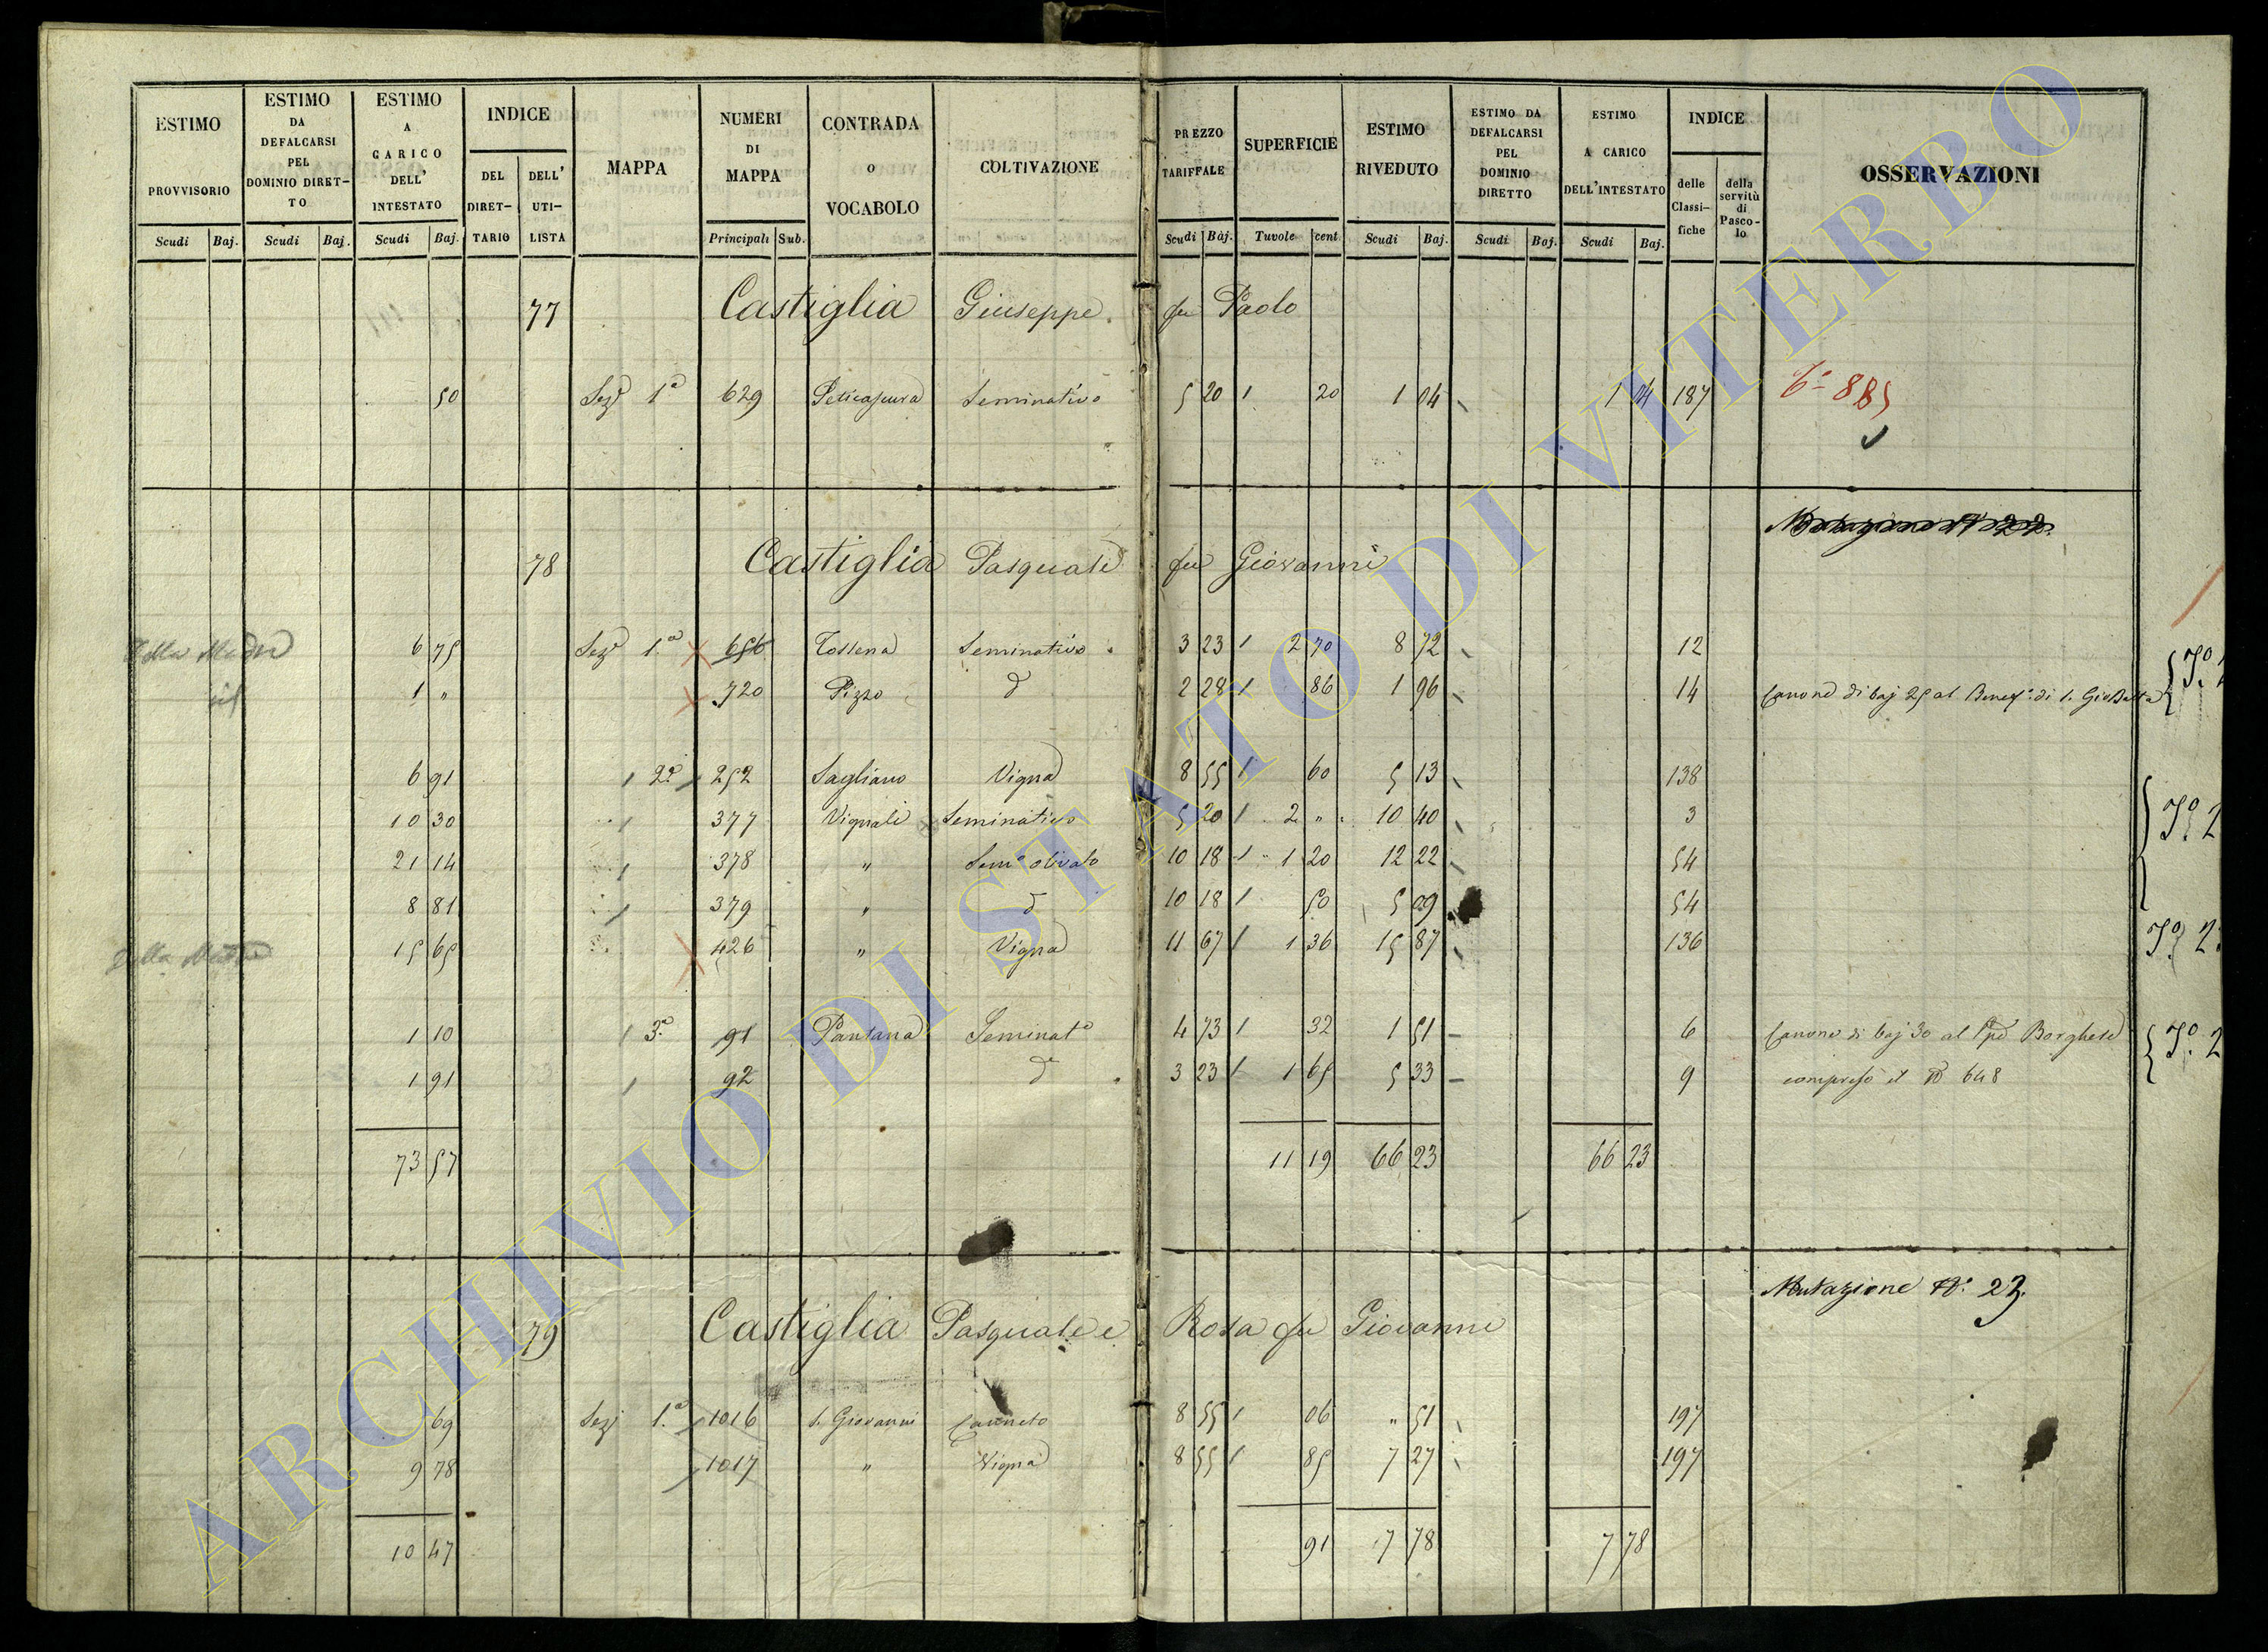 ESTIMO PROVVISORIO
ESTIMO DA DEFALCARSI PEL DOMINIO DIRET-TO
ESTIMO A CARICO DELL' INTESTATO
INDICE
DEL DIRET-TARIO
DELL' UTI-LISTA
MAPPA
NUMERI DI MAPPA
CONTRADA o VOCABOLO
COLTIVAZIONE
PREZZO TARIFFALE
SUPERFICIE
ESTIMO RIVEDUTO
ESTIMO DA DEFALCARSI PEL DOMINIO DIRETTO
ESTIMO A CARICO DELL'INTESTATO
INDICE
delle Classi-fiche
della servitù di Pasco-lo
OSSERVAZIONI
Scudi Baj. Scudi Baj. Scudi Baj. Principali Sub. Scudi Baj. Tavole cent Scudi Baj. Scudi Baj. Scudi Baj.
77 Castiglia Giuseppe fu Paolo
50 Sezê 1ª 629 Seminativo 5 20 20 1 04 1 04 187 885
Mutazione Nº 22.
78 Castiglia Pasquale fu Giovanni
6 75 Sezê 1.ª 656 Tossena Seminativo 3 23 2 70 8 72 12
1 " 720 Pizzo d 2 28 86 1 96 14 Canone di baj 25 al Benefº di S. Gio Batta
6 91 2ª 252 Sagliano Vigna 8 55 60 5 13 138
10 30 377 Vignali Seminativo 5 20 2 " 10 40 3
21 14 378 " Semº olivato 10 18 1 20 12 22 54
8 81 379 " d 10 18 50 5 09 54
Della Madre 15 65 426 " Vigna 11 67 1 36 15 87 136
1 10 3ª 91 Pantana Seminatº 4 73 32 1 51 6 Canone di baj 30 al Borghese
1 91 92 d 3 23 1 65 5 33 9 compreso il Nº 648
73 57 11 19 66 23 66 23
Mutazione Nº 23.
79 Castiglia Pasquale e Rosa fu Giovanni
69 Sezê 1.ª 1016 S. Giovanni Canneto 8 55 06 " 51 197
9 78 1017 " Vigna 8 55 85 7 27 197
10 47 91 7 78 7 78
ARCHIVIO DI STATO DI VITERBO